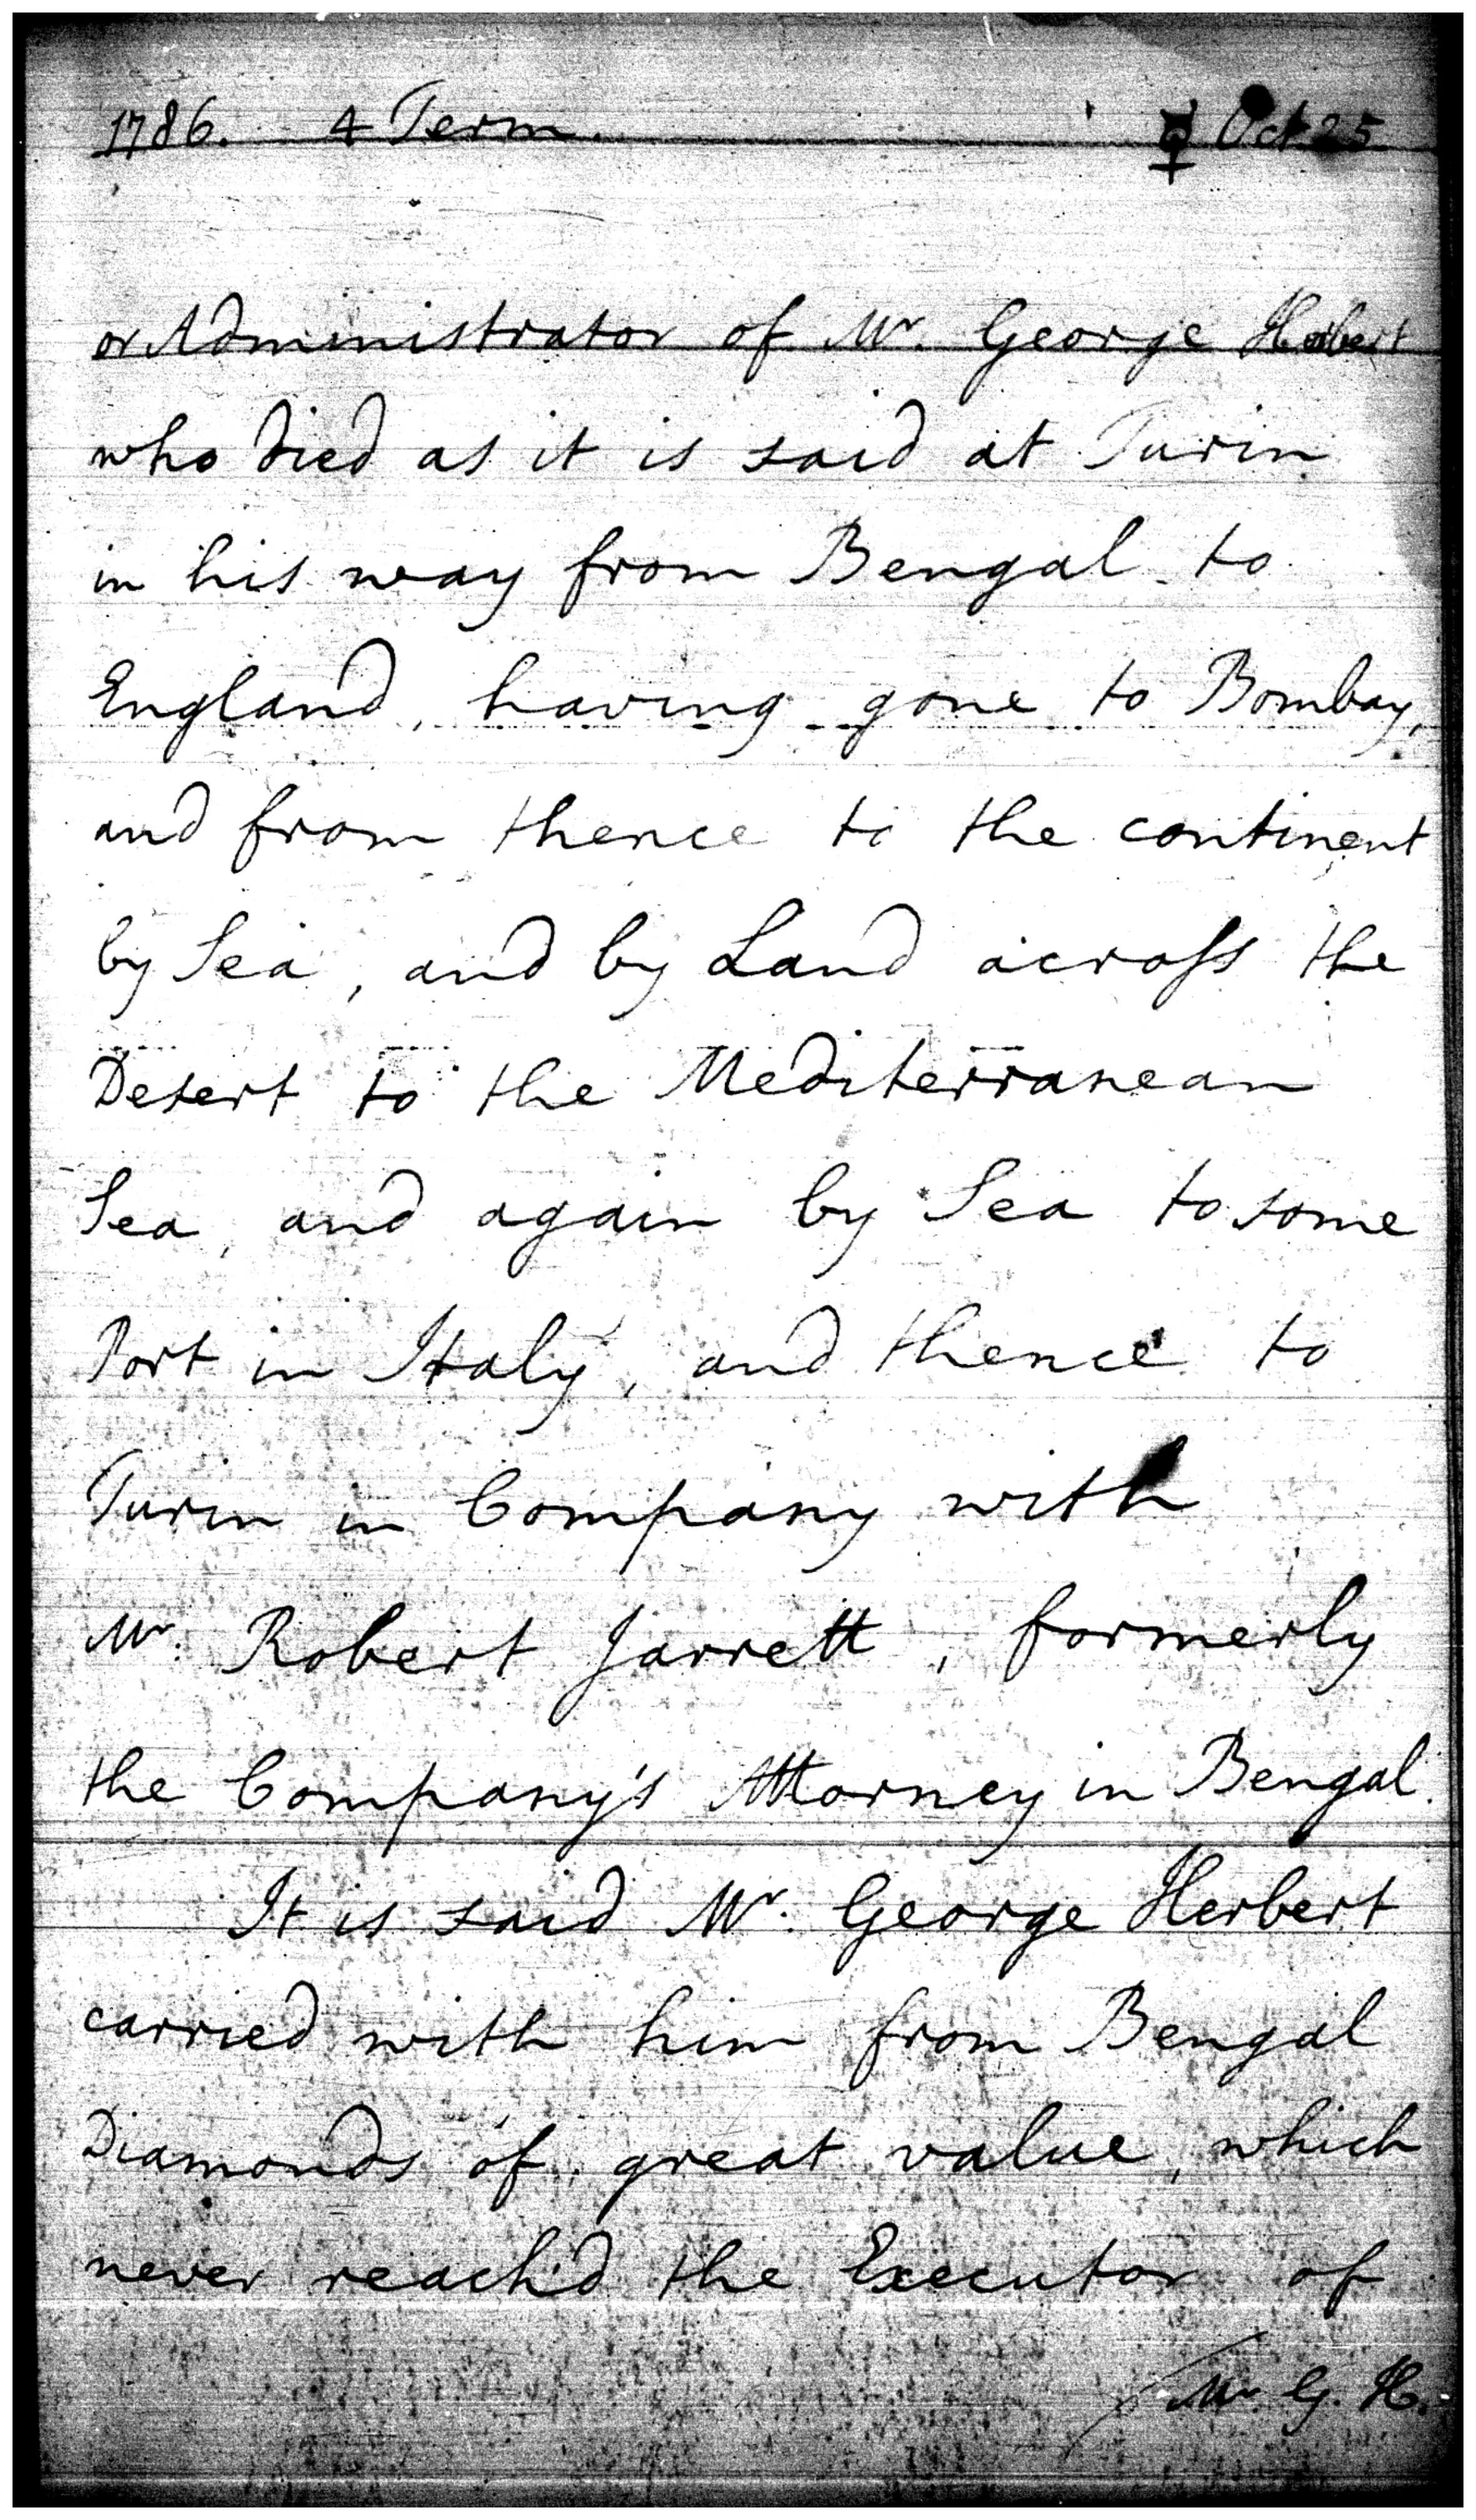 1786. 4 Term. ☿ Oct 25
or Administrator of Mr. George Herbert
who died as it is said at Turin
in his way from Bengal to
England, having gone to Bombay,
and from thence to the continent
by Sea, and by Land acroſs the
Desert to the Mediterranean
Sea, and again by Sea to some
Port in Italy, and thence to
Turin in Company with
Mr. Robert Jarrett, formerly
the Company's Attorney in Bengal.
It is said Mr. George Herbert
carried with him from Bengal
Diamonds of great value, which
never reach'd the Executor of
Mr G. H.